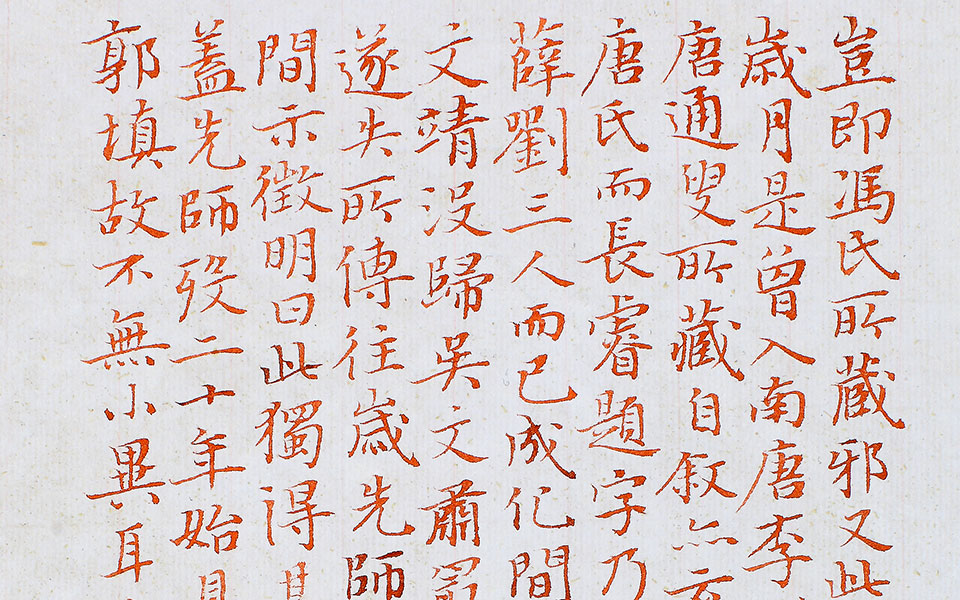 豈即馮氏所藏邪又此
歲月是曾入南唐李
唐通叟所藏自叙亦云
唐氏而長睿題字乃
薛劉三人而已成化間
文靖沒歸吳文肅
遂失所傳往歲先師
間示徵明曰此獨得其
蓋先師歿二十年始見
郭填故不無小異耳